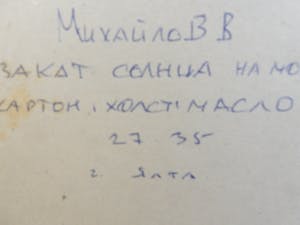 Михайлов В
ЗАКАТ СОЛНЦА НА МО
КАРТОН, ХОЛСТ, МАСЛО
27 35
г. Ялта